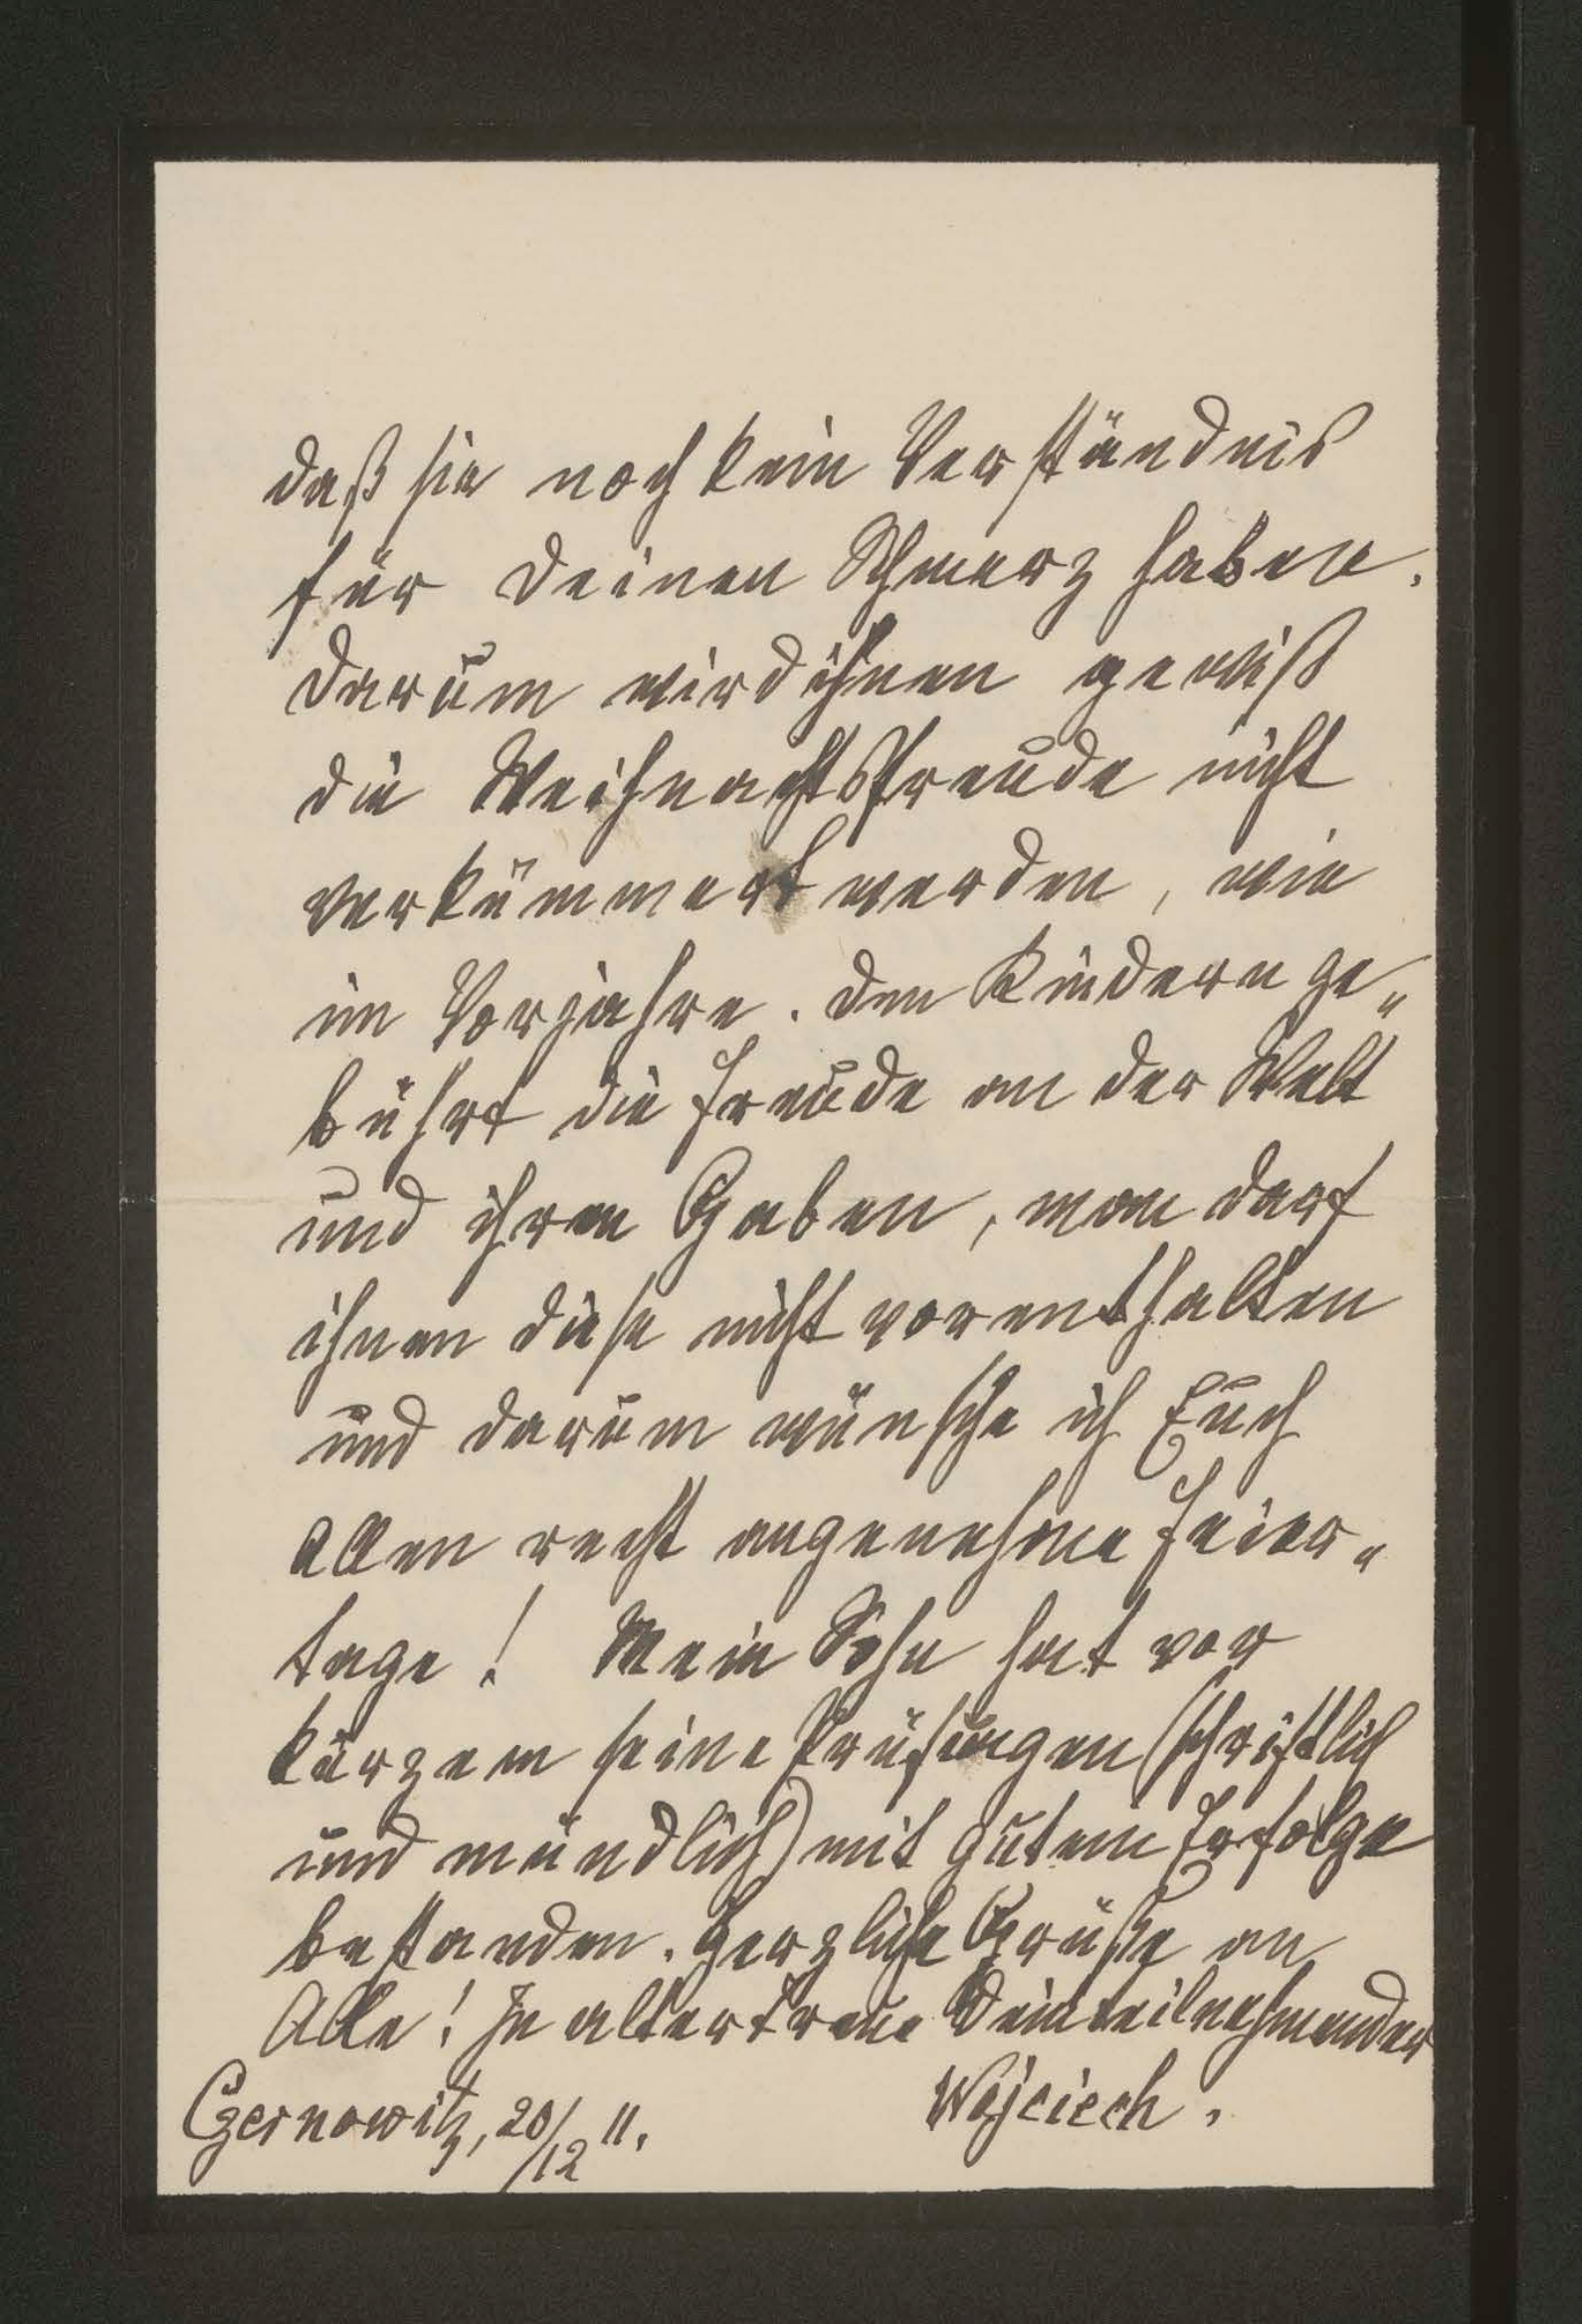 daß sie noch kein Verständnis
für Deinen Schmerz haben.
Darum wird ihnen gewiß
die Weihnachtsfreude nicht
verkümmert werden, wie
im Vorjahre. Den Kindern ge„
bührt die Freude an der Welt
und ihren Gaben, man darf
ihnen diese nicht vorenthalten
und darum wünsche ich Euch
Allen recht angenehme Feier„
tage! Mein Sohn hat vor
kurzem seine Prüfungen (schriftlich
und mündlich) mit gutem Erfolge
bestanden. Herzliche Grüße an
Alle! In alter Treue Dein teilnehmender
Wojciech.
Czernowitz, 20/12 11.